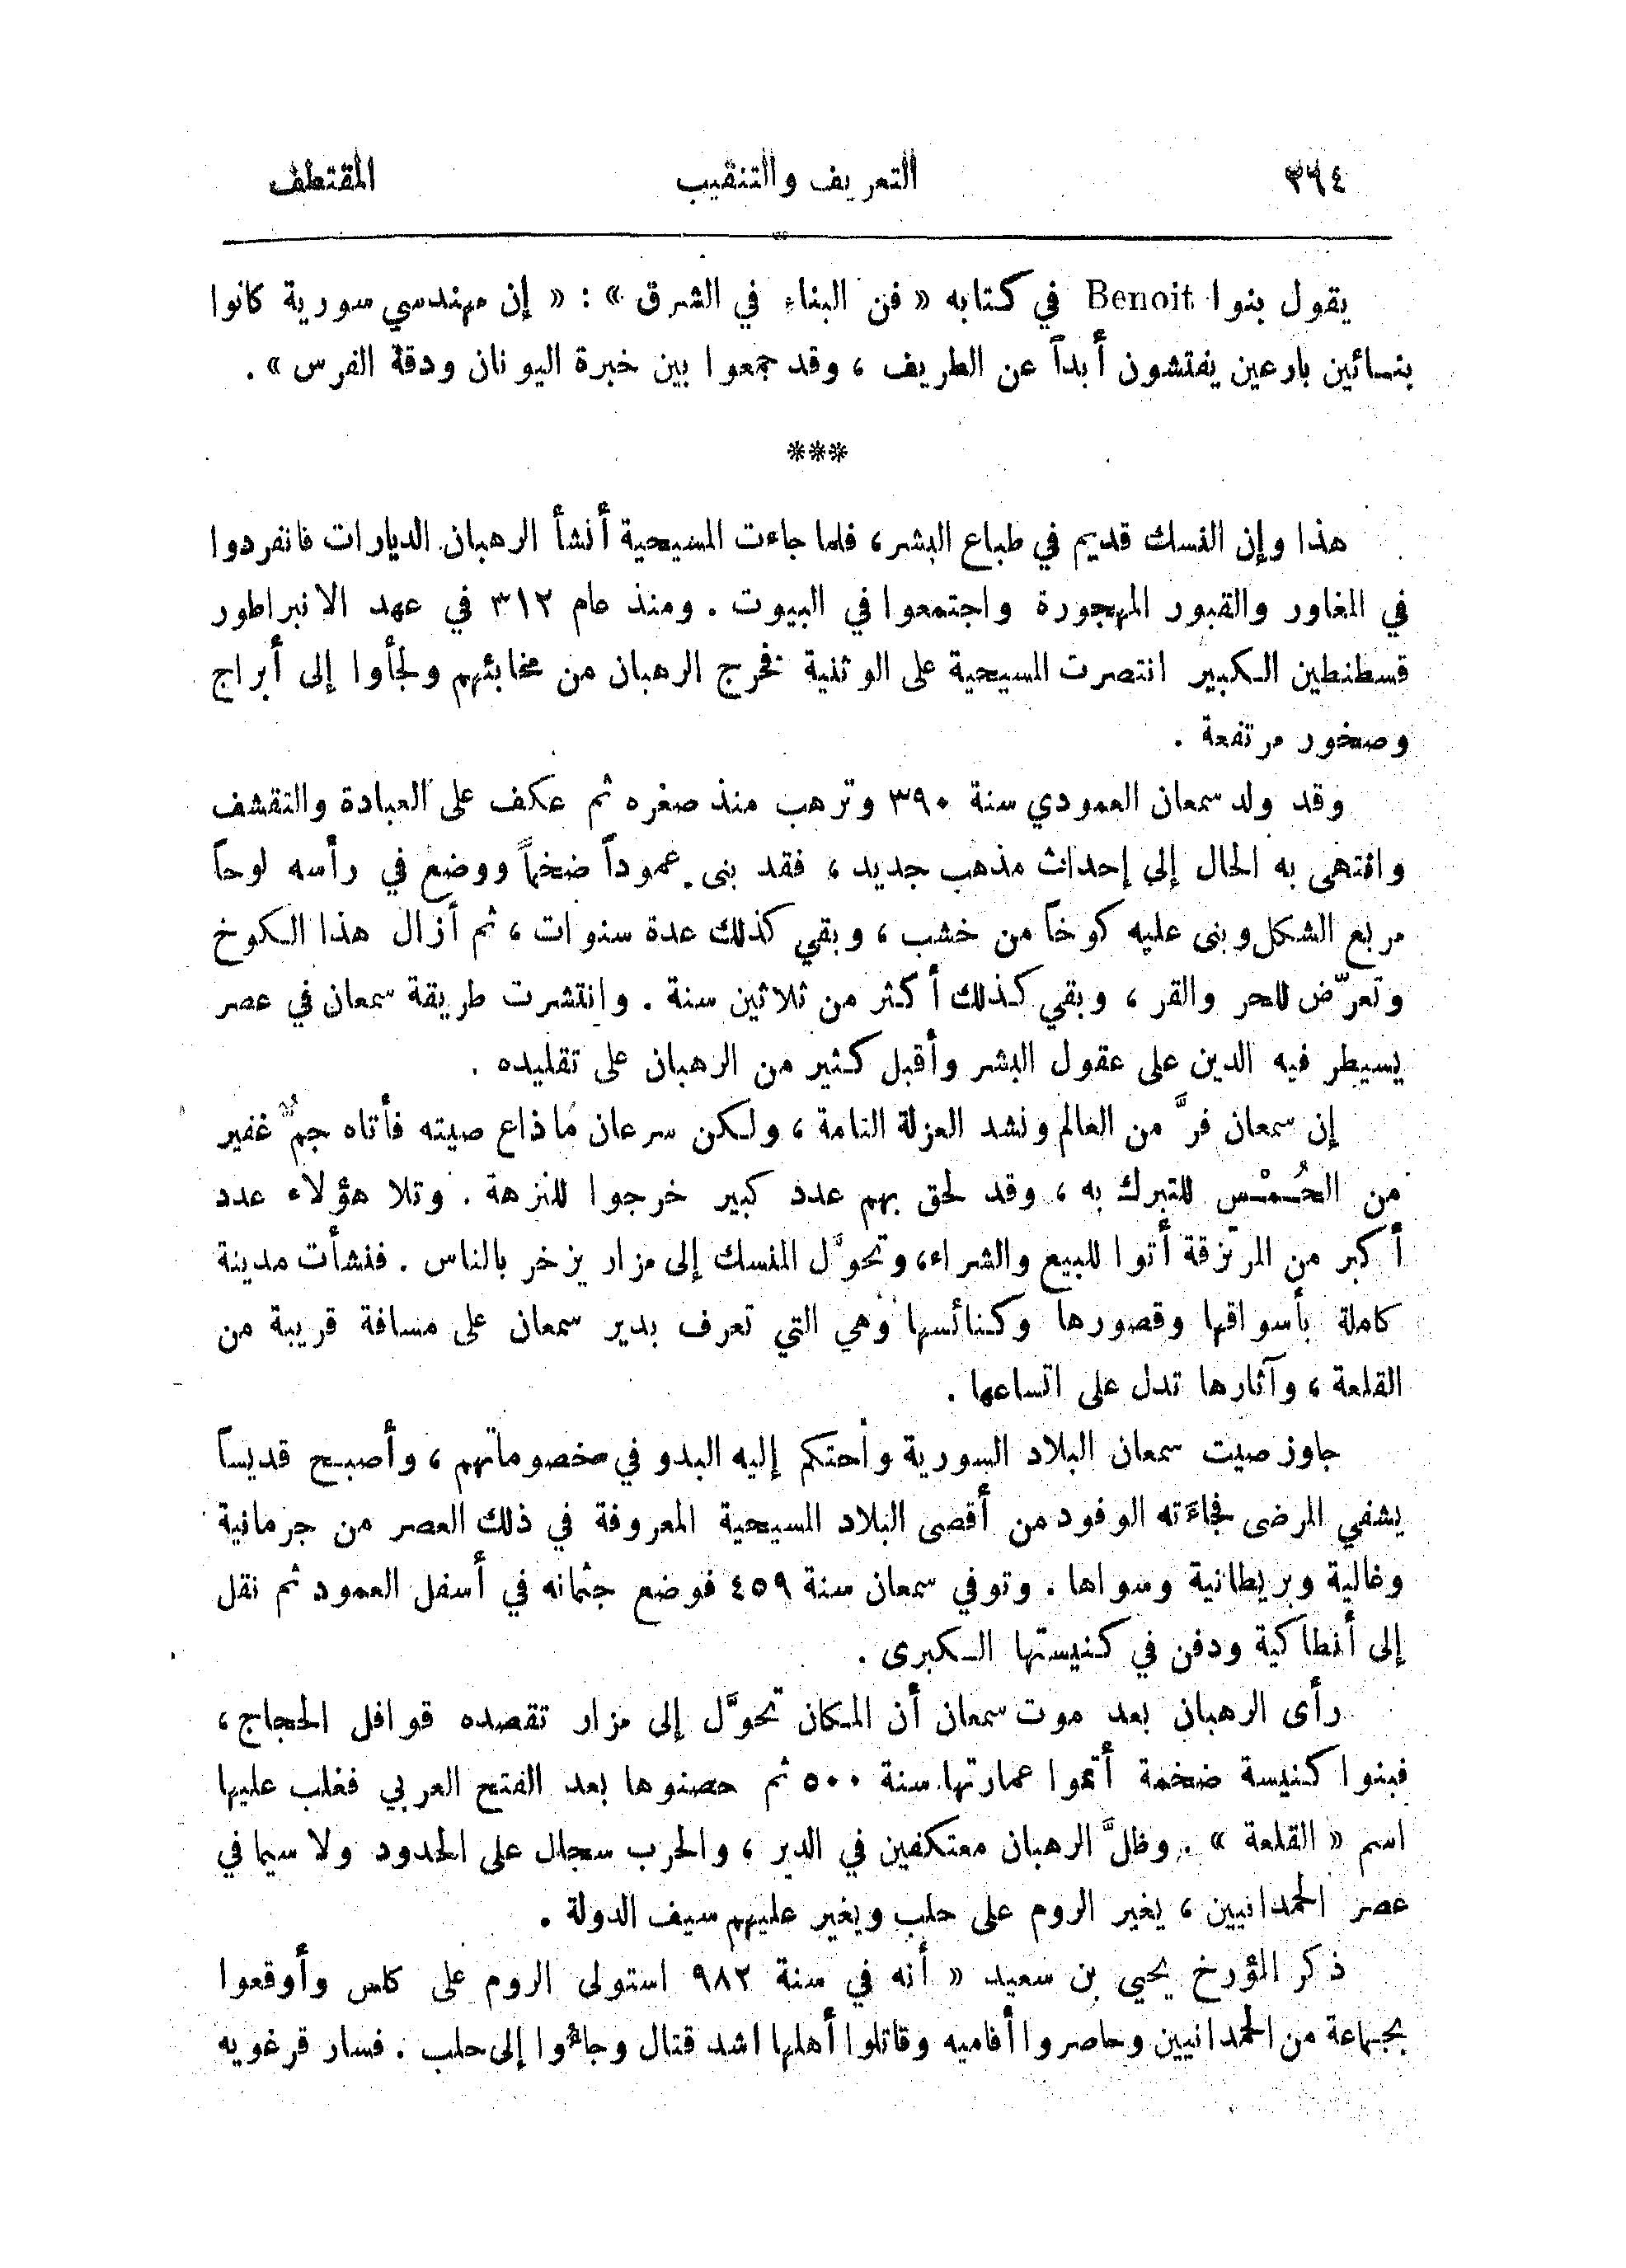 ٣٦٤ التعريف والتنقيب المقتطف
يقول بنوا Benoit في كتابه « فن البناء في الشرق » : « إن مهندسي سورية كانوا
بنائين بارعين يفتشون أبداً عن الطريف ، وقد جمعوا بين خبرة اليونان ودقة الفرس » .
***
هذا وإن النسك قديم في طباع البشر ، فلما جاءت المسيحية أنشأ الرهبان الديارات فانفردوا
في المغاور والقبور المهجورة واجتمعوا في البيوت . ومنذ عام ٣١٢ في عهد الانبراطور
قسطنطين الكبير انتصرت المسيحية على الوثنية فخرج الرهبان من مخابئهم ولجأوا إلى أبراج
وصخور مرتفعة .
وقد ولد سمعان العمودي سنة ٣٩٠ وترهب منذ صغره ثم عكف على العبادة والتقشف
وانتهى به الحال إلى إحداث مذهب جديد ، فقد بنى عموداً ضخماً ووضع في رأسه لوحاً
مربع الشكل وبنى عليه كوخاً من خشب ، وبقي كذلك عدة سنوات ، ثم أزال هذا الكوخ
وتعرّض للحر والقر ، وبقي كذلك أكثر من ثلاثين سنة . وانتشرت طريقة سمعان في عصر
يسيطر فيه الدين على عقول البشر وأقبل كثير من الرهبان على تقليده .
إن سمعان فرَّ من العالم ونشد العزلة التامة ، ولكن سرعان ما ذاع صيته فأتاه جمٌّ غفير
من الحُمْس للتبرك به ، وقد لحق بهم عدد كبير خرجوا للنزهة . وتلا هؤلاء عدد
أكبر من المرتزقة أتوا للبيع والشراء ، وتحوَّل المنسك إلى مزار يزخر بالناس . فنشأت مدينة
كاملة بأسواقها وقصورها وكنائسها وهي التي تعرف بدير سمعان على مسافة قريبة من
القلعة ، وآثارها تدل على اتساعها .
جاوز صيت سمعان البلاد السورية واحتكم إليه البدو في خصوماتهم ، وأصبح قديساً
يشفي المرضى فجاءته الوفود من أقصى البلاد المسيحية المعروفة في ذلك العصر من جرمانية
وغالية وبريطانية وسواها . وتوفي سمعان سنة ٤٥٩ فوضع جثمانه في أسفل العمود ثم نقل
إلى أنطاكية ودفن في كنيستها الكبرى .
رأى الرهبان بعد موت سمعان أن المكان تحوَّل إلى مزار تقصده قوافل الحجاج ،
فبنوا كنيسة ضخمة أتموا عمارتها سنة ٥٠٠ ثم حصنوها بعد الفتح العربي فغلب عليها
اسم « القلعة » . وظلَّ الرهبان معتكفين في الدير ، والحرب سجال على الحدود ولا سيما في
عصر الحمدانيين ، يغير الروم على حلب ويغير عليهم سيف الدولة .
ذكر المؤرخ يحيي بن سعيد « أنه في سنة ٩٨٢ استولى الروم على كلس وأوقعوا
بجماعة من الحمدانيين وحاصروا أفاميه وقاتلوا أهلها اشد قتال وجاؤا إلى حلب . فسار قرغويه